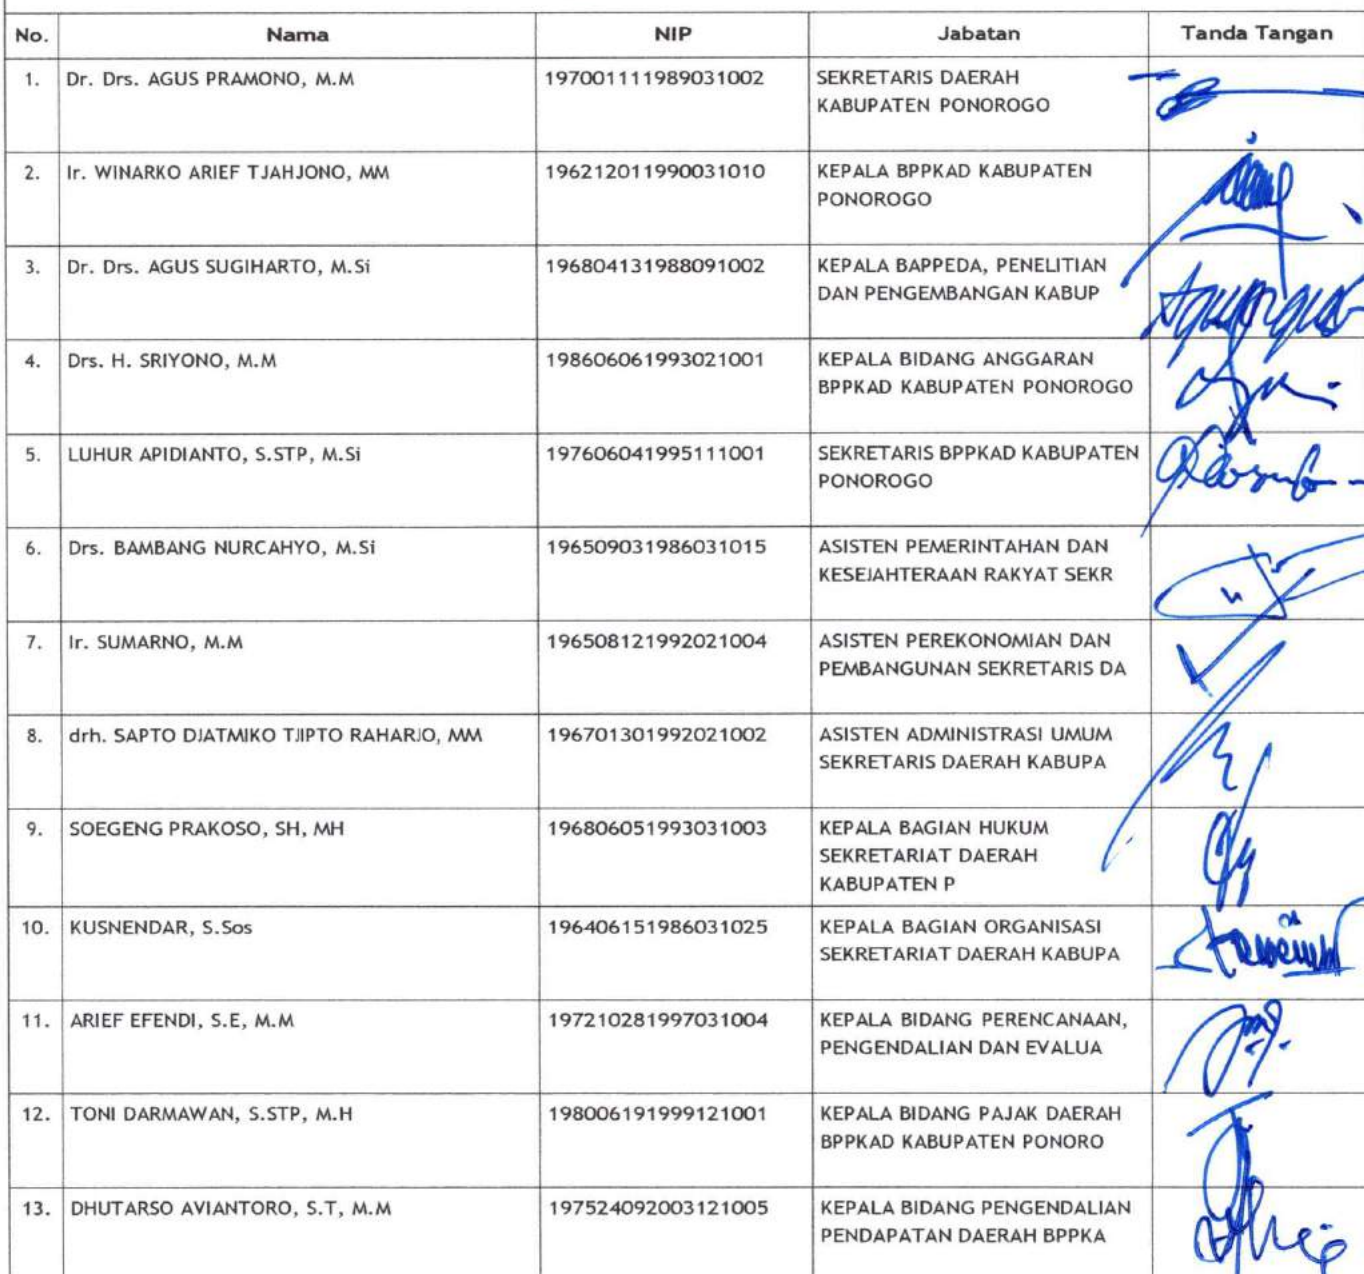 No. Nama NIP Jabatan Tanda Tangan
1. Dr. Drs. AGUS PRAMONO, M.M 197001111989031002 SEKRETARIS DAERAH
KABUPATEN PONOROGO
2. Ir. WINARKO ARIEF TJAHJONO, MM 196212011990031010 KEPALA BPPKAD KABUPATEN
PONOROGO
3. Dr. Drs. AGUS SUGIHARTO, M.Si 196804131988091002 KEPALA BAPPEDA, PENELITIAN
DAN PENGEMBANGAN KABUP
4. Drs. H. SRIYONO, M.M 198606061993021001 KEPALA BIDANG ANGGARAN
BPPKAD KABUPATEN PONOROGO
5. LUHUR APIDIANTO, S.STP, M.Si 197606041995111001 SEKRETARIS BPPKAD KABUPATEN
PONOROGO
6. Drs. BAMBANG NURCAHYO, M.Si 196509031986031015 ASISTEN PEMERINTAHAN DAN
KESEJAHTERAAN RAKYAT SEKR
7. Ir. SUMARNO, M.M 196508121992021004 ASISTEN PEREKONOMIAN DAN
PEMBANGUNAN SEKRETARIS DA
8. drh. SAPTO DJATMIKO TJIPTO RAHARJO, MM 196701301992021002 ASISTEN ADMINISTRASI UMUM
SEKRETARIS DAERAH KABUPA
9. SOEGENG PRAKOSO, SH, MH 196806051993031003 KEPALA BAGIAN HUKUM
SEKRETARIAT DAERAH
KABUPATEN P
10. KUSNENDAR, S.Sos 196406151986031025 KEPALA BAGIAN ORGANISASI
SEKRETARIAT DAERAH KABUPA
11. ARIEF EFENDI, S.E, M.M 197210281997031004 KEPALA BIDANG PERENCANAAN,
PENGENDALIAN DAN EVALUA
12. TONI DARMAWAN, S.STP, M.H 198006191999121001 KEPALA BIDANG PAJAK DAERAH
BPPKAD KABUPATEN PONORO
13. DHUTARSO AVIANTORO, S.T, M.M 197524092003121005 KEPALA BIDANG PENGENDALIAN
PENDAPATAN DAERAH BPPKA